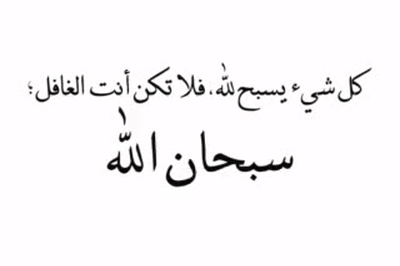 كل شيء يسبح لله، فلا تكن أنت الغافل؛
سبحان الله